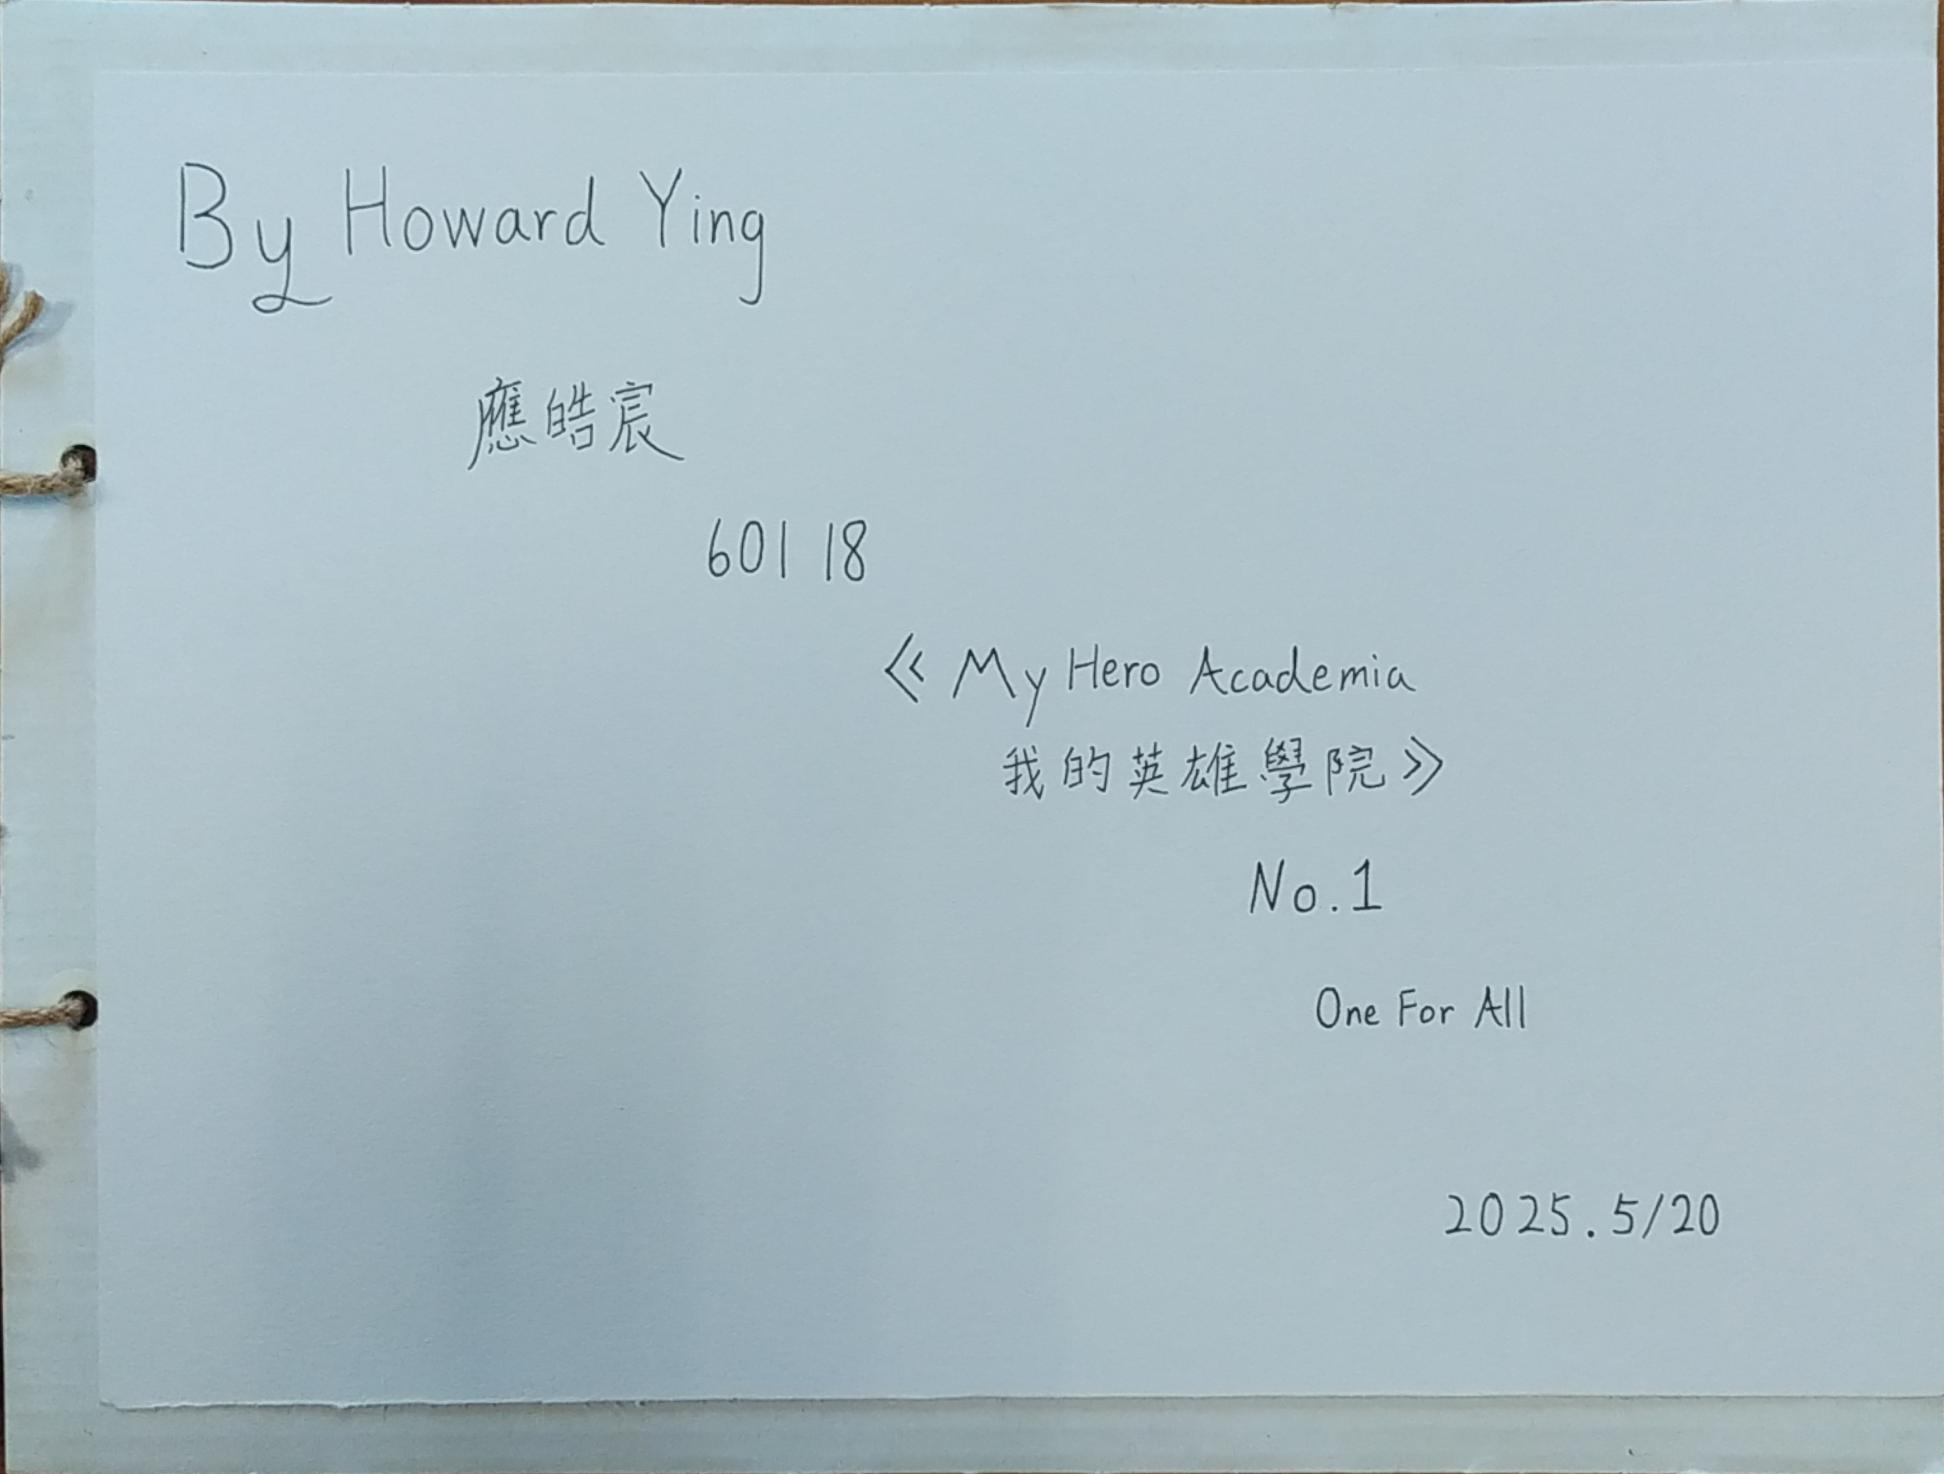 By Howard Ying
應皓宸
601 18
《My Hero Academia
我的英雄學院》
No.1
One For All
2025.5/20